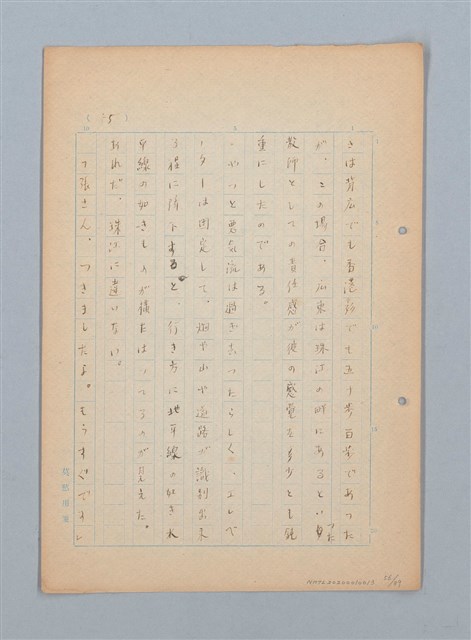 (35)
さは背広でも香港彩でも五十歩百歩であった
が、この場合、広東は珠江の畔にあるといった
教师としての責任感が彼の感覚を多少とも鈍
重にしたのである。
やっと悪気流は過ぎさったらしく、エレベ
ーターは固定して、畑や山や道路が識別出来
る程に降下すると、行き方に地平線の如き水
平線の如きものが横たはってるのが見えた。
おれだ、珠江に違いない。
「張さん、つきましたよ。もうすぐですし